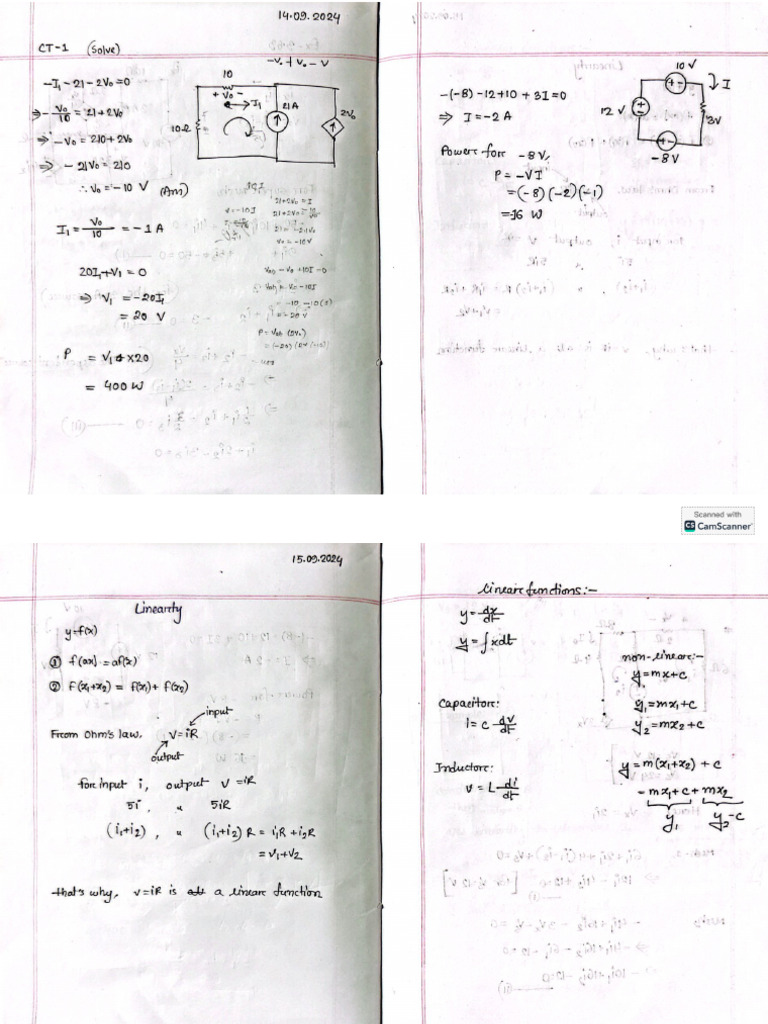 14.09.2024
CT-1 (Solve)
-V₀ + V₀ - V
-I₁ - 21 - 2V₀ = 0
⇒ -V₀/10 = 21 + 2V₀
⇒ -V₀ = 210 + 20V₀
⇒ -21V₀ = 210
∴ V₀ = -10 V (Ans)
10
+ V₀ -
I₁
21 A
2V₀
10Ω
I₁ = V₀/10 = -1 A
20I₁ + V₁ = 0
⇒ V₁ = -20I₁
= 20 V
P = V₁ × 20
= 400 W
21 + 2V₀ = I
V₀ = -10I
V₀ = -10V
-(-8) - 12 + 10 + 3I = 0
⇒ I = -2 A
10 V
I
12 V
3V
-8 V
Powers for -8 V,
P = -VI
= (-8) (-2) (-1)
= -16 W
Scanned with
CS CamScanner
15.09.2024
Linearity
y = f(x)
① f(ax) = af(x)
② f(x₁+x₂) = f(x₁) + f(x₂)
input
From Ohm's law, V = iR
output
for input i, output V = iR
5i, " 5iR
(i₁+i₂), " (i₁+i₂) R = i₁R + i₂R
= V₁ + V₂
that's why, V = iR is a linear function
Linear functions:-
y = dx/dt
y = ∫xdt
Capacitor:
i = c dv/dt
Inductor:
v = L di/dt
non-linear:-
y = mx + c
y₁ = mx₁ + c
y₂ = mx₂ + c
y = m(x₁+x₂) + c
= mx₁ + c + mx₂
y₁ y₂-c